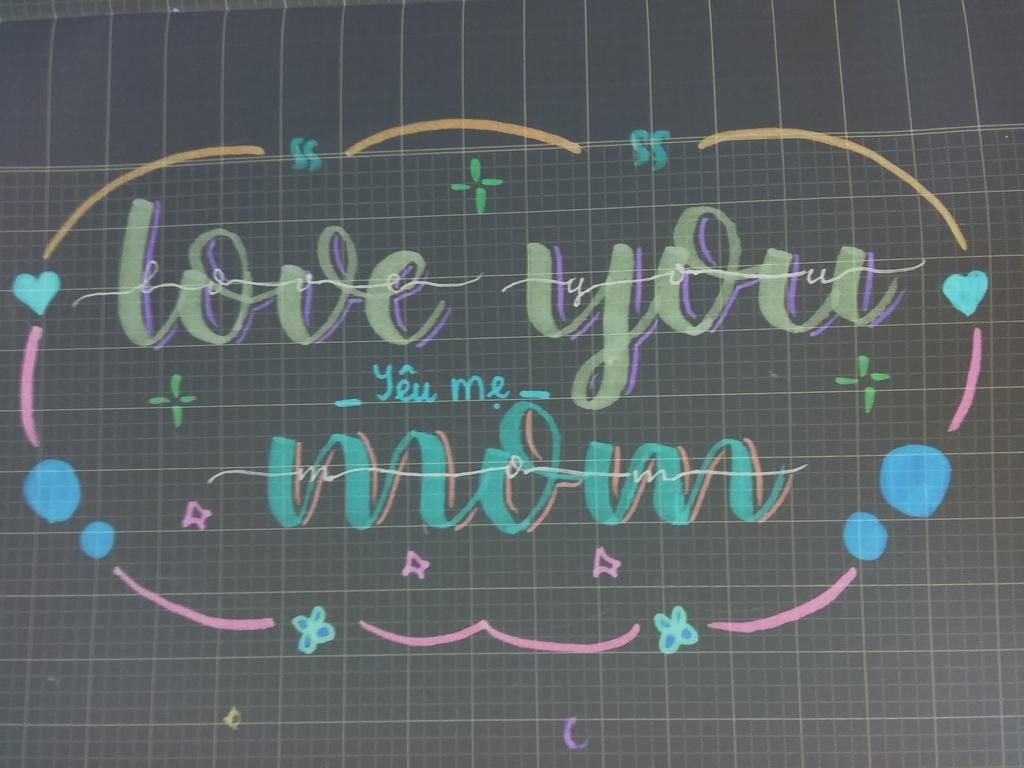 love you
love you
_ Yêu mẹ _
mom
mom